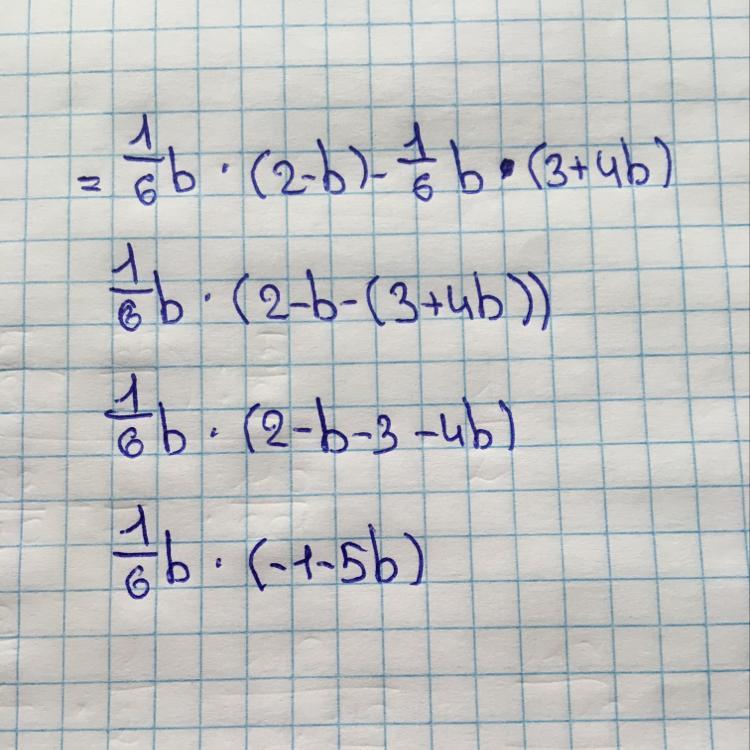 = 1/6 b · (2-b) - 1/6 b · (3+4b)
1/6 b · (2-b-(3+4b))
1/6 b · (2-b-3-4b)
1/6 b · (-1-5b)